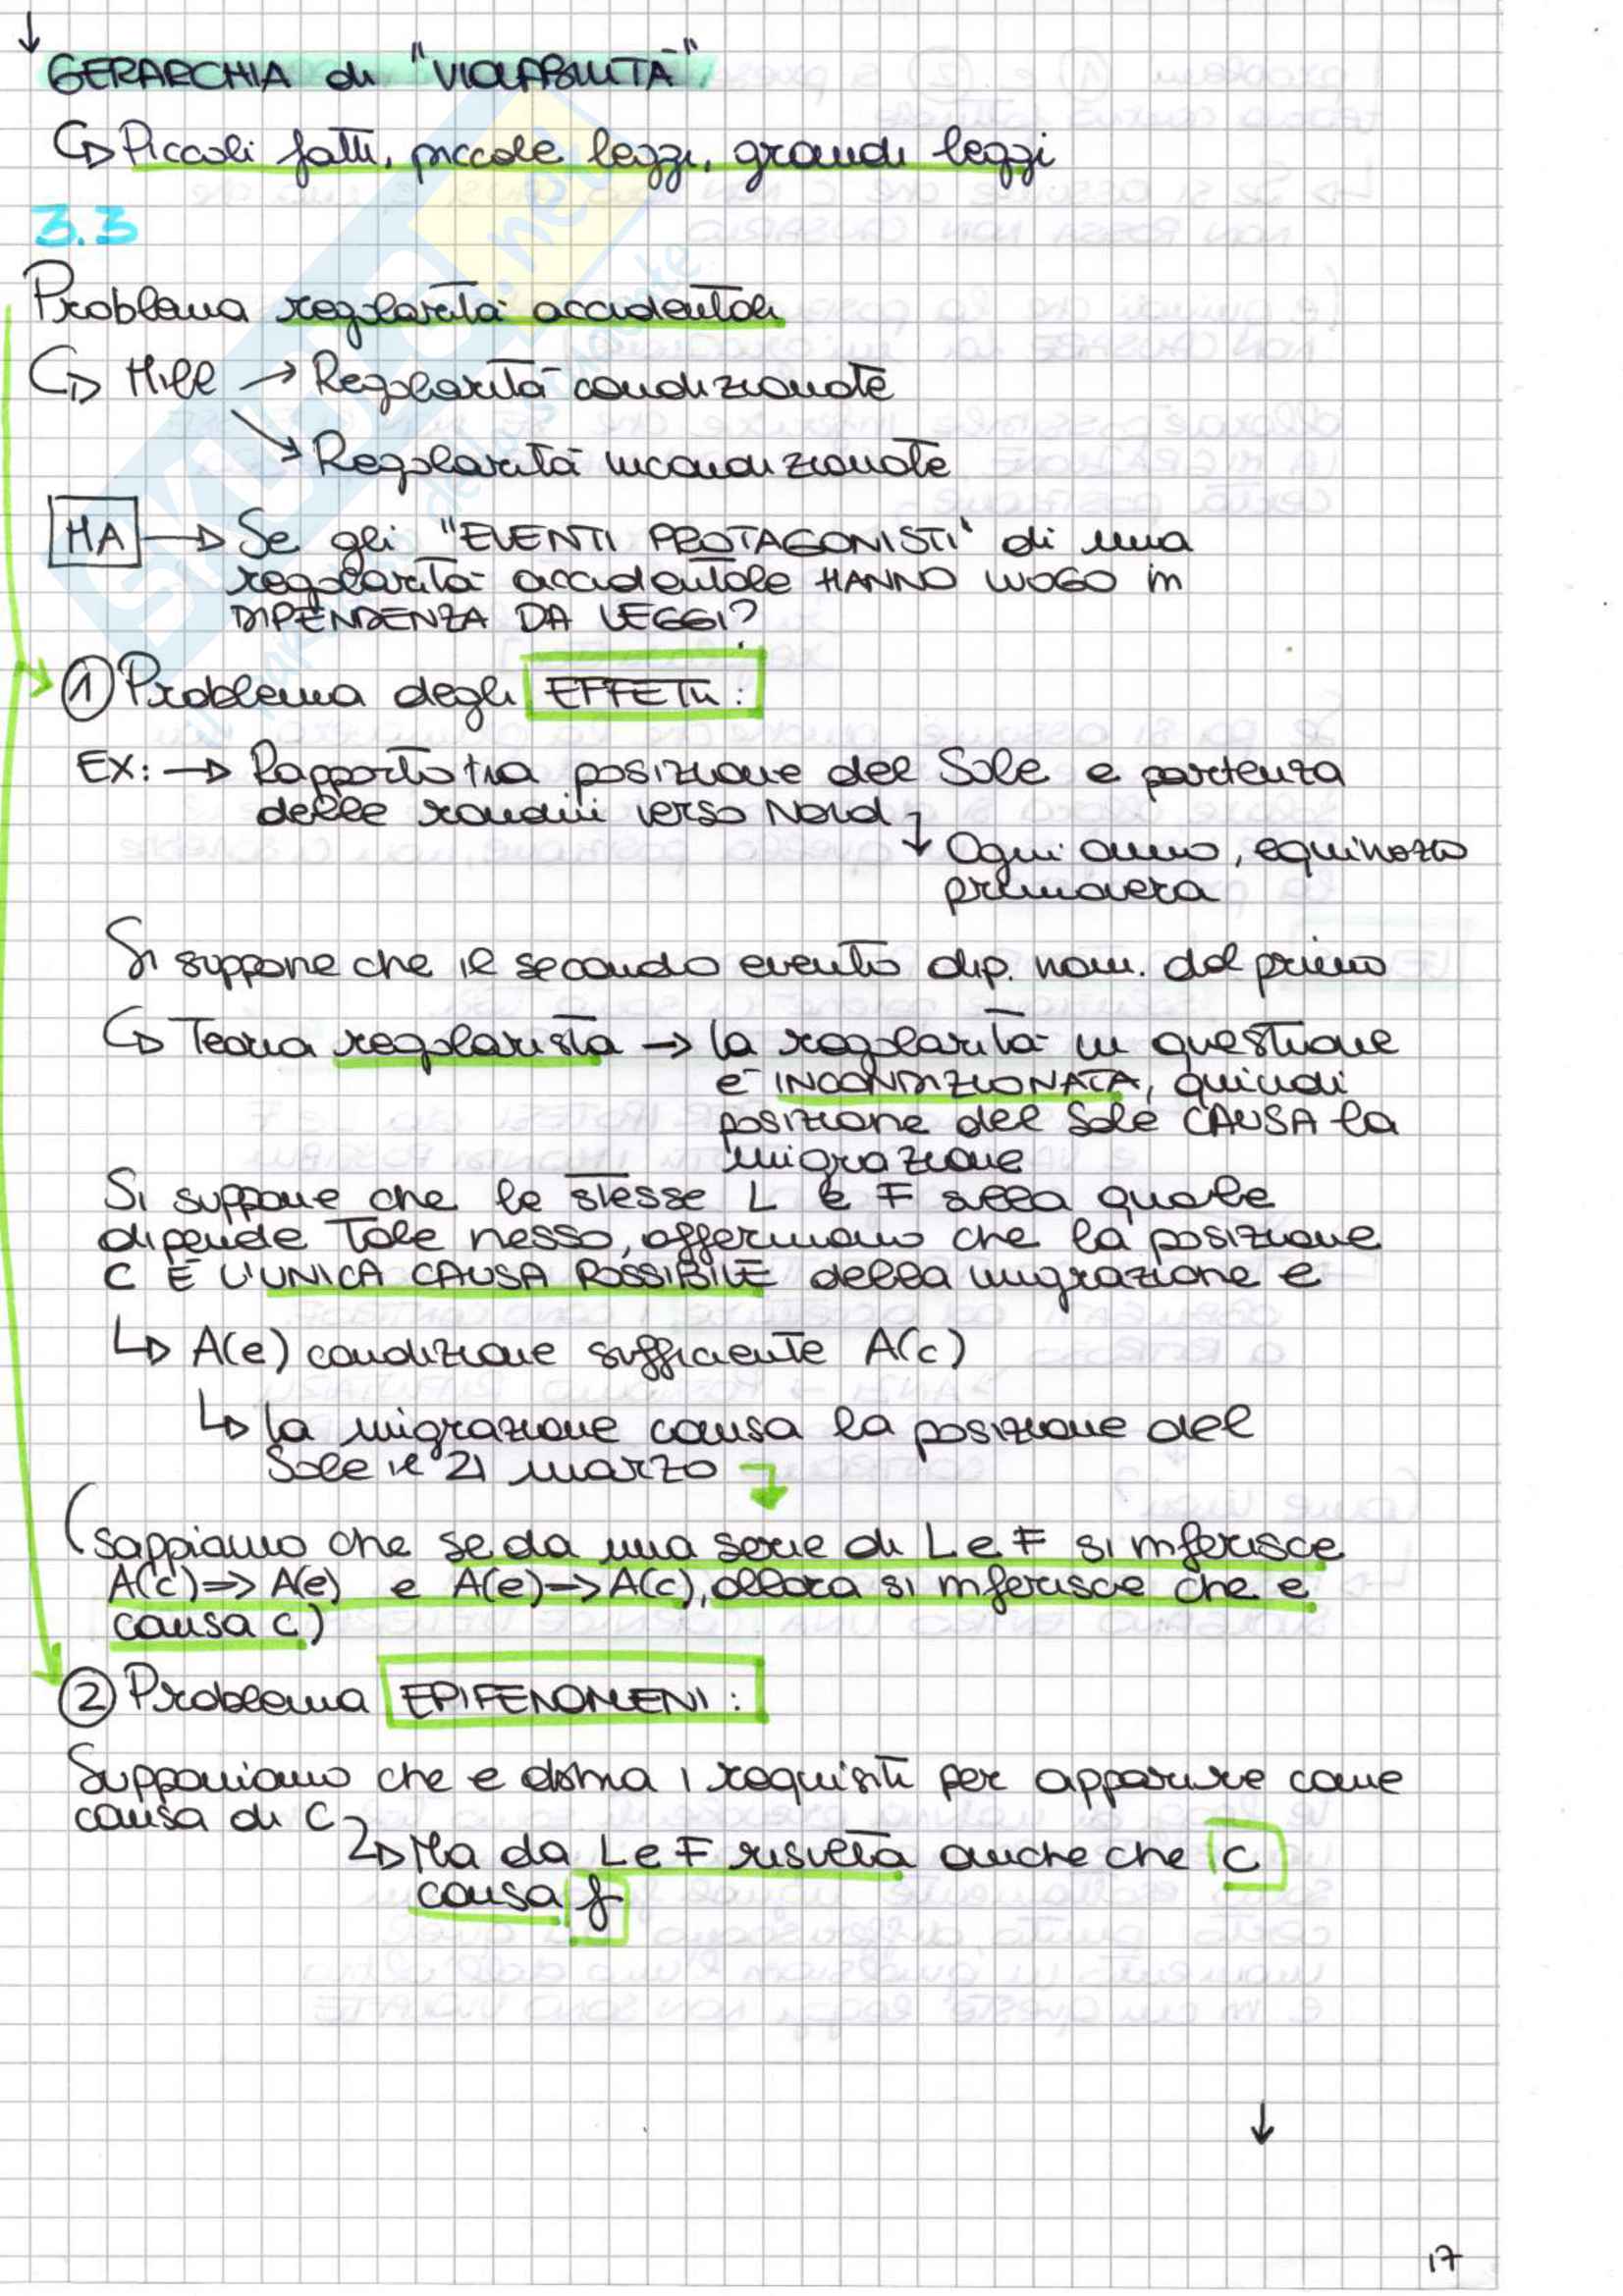 ↓
GERARCHIA di "VIOLABILITÀ"
↳ Piccoli fatti, piccole leggi, grandi leggi
3.3
Problema regolarità accidentali
↳ Mill → Regolarità condizionate
↘ Regolarità incondizionate
MA → Se gli "EVENTI PROTAGONISTI" di una
regolarità accidentale HANNO LUOGO in
DIPENDENZA DA LEGGI?
① Problema degli EFFETTI:
EX: → Rapporto tra posizione del Sole e partenza
delle rondini verso Nord
↓ Ogni anno, equinozio
primavera
Si suppone che il secondo evento dip. nom. dal primo
↳ Teoria regolarista → la regolarità in questione
è INCONDIZIONATA, quindi
posizione del Sole CAUSA la
migrazione
Si suppone che le stesse L e F alla quale
dipende tale nesso, affermano che la posizione
C È L'UNICA CAUSA POSSIBILE della migrazione e
↳ A(e) condizione sufficiente A(c)
↳ la migrazione causa la posizione del
Sole il 21 marzo
(sappiamo che se da una serie di L e F si inferisce
A(c)=> A(e) e A(e)=> A(c), allora si inferisce che e
causa c)
② Problema EPIFENOMENI:
Supponiamo che e abbia i requisiti per apparire come
causa di C
↳ Ma da L e F risulta anche che c
causa f
↓
17
SKUOLA.net